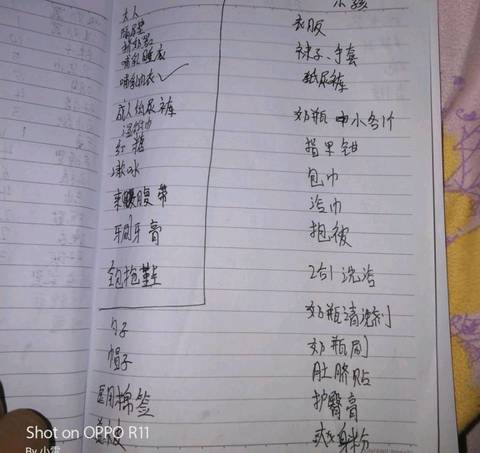 大人
隔尿垫
哺乳睡衣
哺乳内衣
成人纸尿裤
湿纸巾
红糖
漱水
束腰腹带
牙刷牙膏
全包拖鞋
勺子
帽子
医用棉签
小孩
衣服
袜子、手套
纸尿裤
奶瓶 中小各1个
指甲钳
包巾
浴巾
抱被
2合1洗浴
奶瓶清洗剂
奶瓶刷
肚脐贴
护臀膏
爽身粉
Shot on OPPO R11
By 小雪